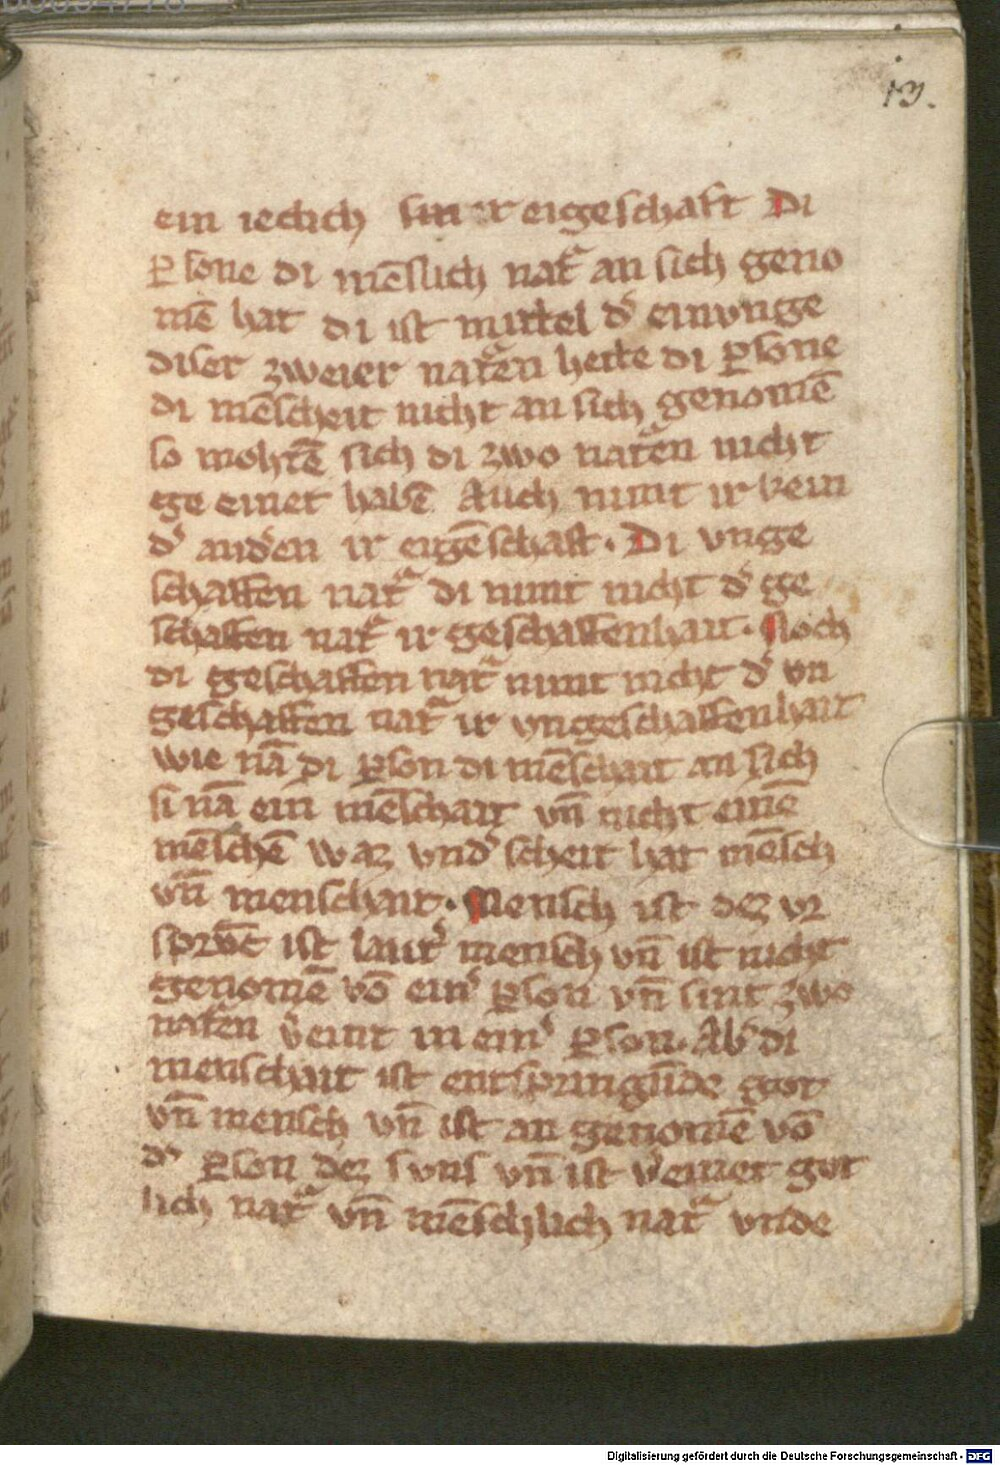 13.
ein ieclich sin ir eigeschaft Di
ꝑsone di mēslich natᷓ an sich geno
mē hat di ist mittel dˀ einunge
diser zweier natᷓen hette di ꝑsone
di mēscheit nicht an sich genomē
so mohtē sich di zwo natᷓen nicht
ge einet habē Auch nimt ir kein
dˀ andˀen ir eigēschaft · Di vnge
schaffen natᷓ di nimt nicht dˀ ge
schaffen natᷓ ir geschaffenhait · Noch
di geschaffen natᷓ nimt nicht dˀ vn
geschaffen natᷓ ir vngeschaffenhait
wie nā di ꝑson di mēschait an sich
si nā ein mēschait vn̄ nicht einē
mēschē waz vndˀscheit hat mēsch
vn̄ menschait · Mensch ist dez vr
ist lautˀ mensch vn̄ ist nicht
genomē vō einˀ ꝑson vn̄ sint zwo
natᷓen vˀeint in einˀ ꝑson · Abˀ di
menschait ist entspringūde got
vn̄ mensch vn̄ ist an genomē vō
dˀ ꝑson dez suns vn̄ ist vˀeinet got
lich natᷓ vn̄ mēschlich natᷓ vnde
Digitalisierung gefördert durch die Deutsche Forschungsgemeinschaft - DFG